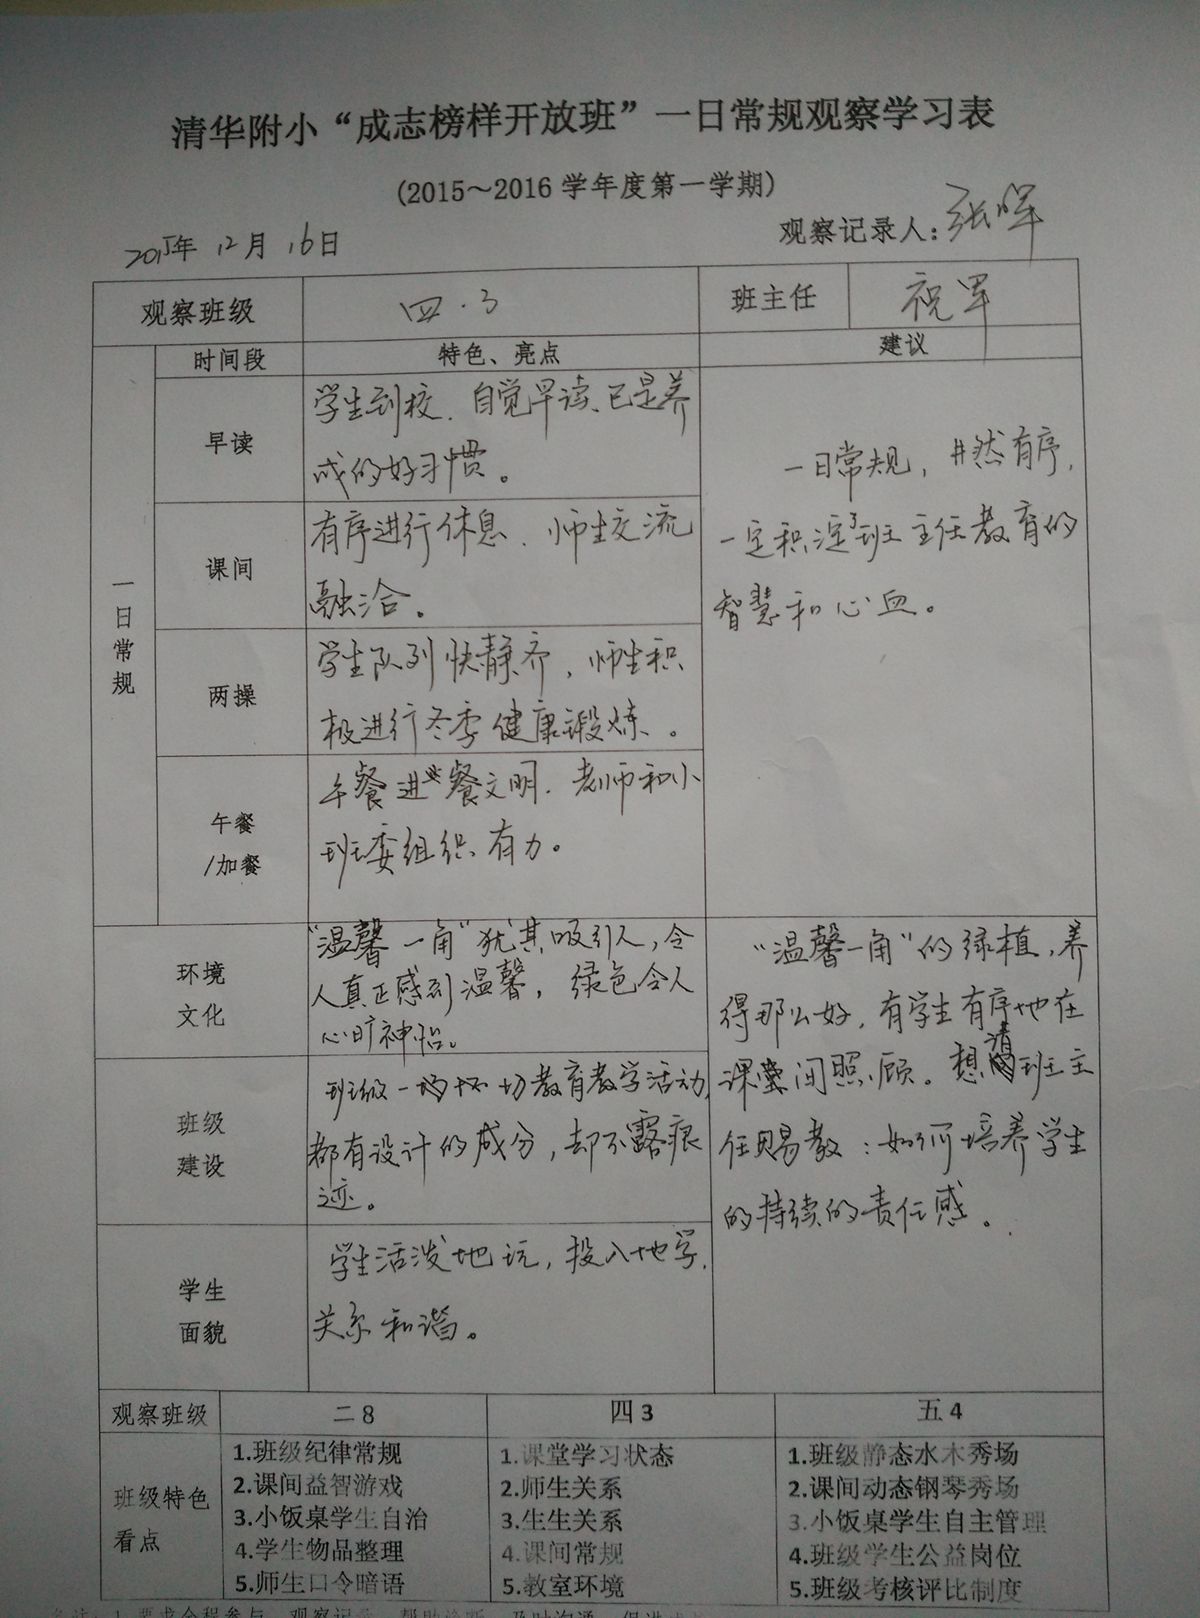 清华附小“成志榜样开放班”一日常规观察学习表
(2015～2016 学年度第一学期)
2015年 12月 16日
观察记录人：张晖
观察班级 四.3 班主任 祝军
时间段 特色、亮点 建议
一日常规
早读
学生到校、自觉早读、已是养
成的好习惯。
课间
有序进行休息、师生交流
融洽。
两操
学生队列快静齐，师生积
极进行冬季健康锻炼。
午餐
/加餐
午餐进餐文明、老师和小
班委组织有力。
一日常规，井然有序，
一定积淀了班主任教育的
智慧和心血。
环境
文化
“温馨一角”犹其吸引人，令
人真正感到温馨，绿色令人
心旷神怡。
班级
建设
班级一切教育教学活动，
都有设计的成分，却不露痕
迹。
学生
面貌
学生活泼地玩，投入地学，
关系和谐。
“温馨一角”的绿植，养
得那么好，有学生有序地在
课间照顾。想请班主
任赐教：如何培养学生
的持续的责任感。
观察班级 二8 四3 五4
班级特色
看点
1.班级纪律常规
2.课间益智游戏
3.小饭桌学生自治
4.学生物品整理
5.师生口令暗语
1.课堂学习状态
2.师生关系
3.生生关系
4.课间常规
5.教室环境
1.班级静态水木秀场
2.课间动态钢琴秀场
3.小饭桌学生自主管理
4.班级学生公益岗位
5.班级考核评比制度